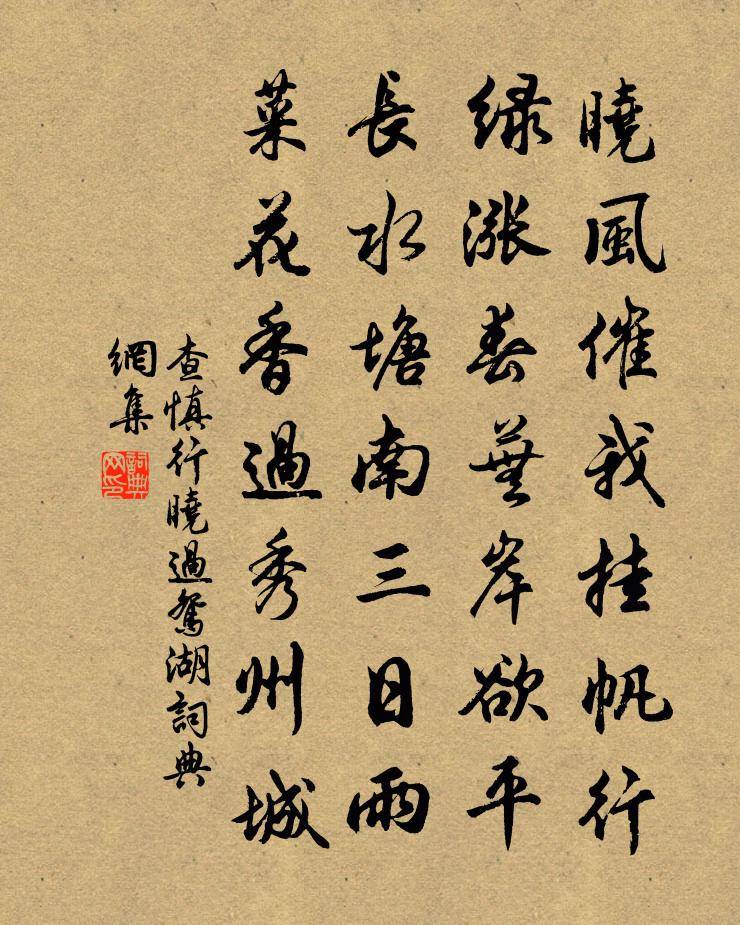 曉風催我挂帆行
绿漲春蕪岸欲平
長水塘南三日雨
菜花香過秀州城
查慎行曉過鴛湖詞典
網集
詞典网印